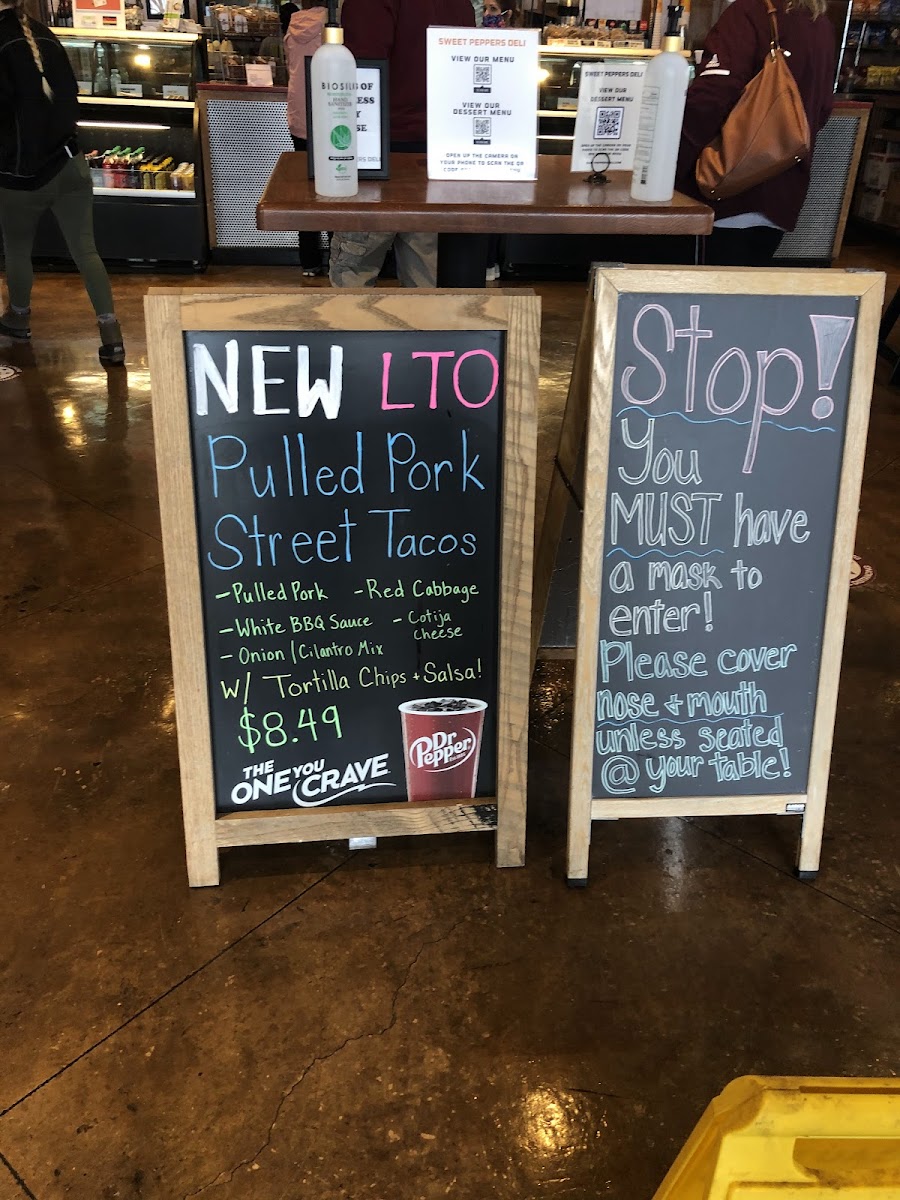 BIOSILK
OF
LESS
Y
SE
RS DELI
SWEET PEPPERS DELI
VIEW OUR MENU
VIEW OUR
DESSERT MENU
OPEN UP THE CAMERA ON
YOUR PHONE TO SCAN THE QR
SWEET PEPPERS DELI
VIEW OUR
DESSERT MENU
NEW LTO
Pulled Pork
Street Tacos
-Pulled Pork -Red Cabbage
-White BBQ Sauce - Cotija
Cheese
- Onion/Cilantro Mix
W/ Tortilla Chips + Salsa!
$8.49
THE
ONE YOU
CRAVE
Dr
Pepper
Stop!
You
MUST have
a mask to
enter!
Please cover
nose + mouth
unless seated
@ your table!